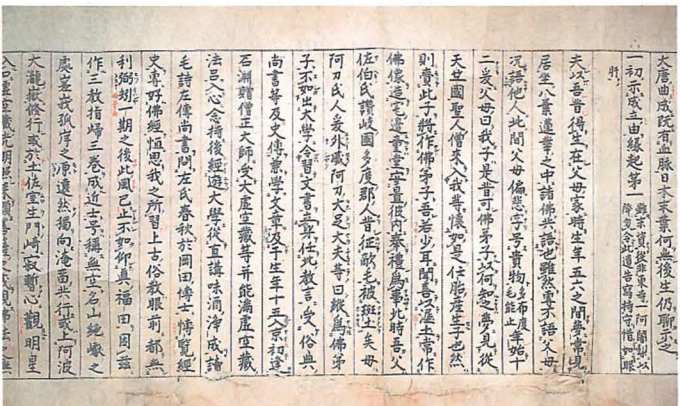 大唐曲成既有血脈日本末葉何無後生仍聊示之
一初示成立由緣起第一
夫以吾昔得生在父母家時生年五六之間夢常見
居坐八葉蓮華之中諸佛共語也雖然專不語父母
況語他人此間父母偏悲字号貴物多布度毛能止年始十
二爰父母曰我子是昔可佛弟子以何知之夢見從
天竺國聖人僧來入我等懷如是任胎產生子也然
則賷此子將作佛弟子吾若少耳聞喜以泥土常作
佛像造宅邊童堂安置彼內奉禮爲事此時吾父
佐伯氏讚岐國多度郡人昔征敵毛被班土矣母
阿刀氏人爰外戚阿刀大足大夫等曰縱爲佛弟
子不如出大學令習文書立身任此教言受俗典
尚書等及史傳兼學文章及于生年十五入京初逢
石淵贈僧正大師受大虛空藏等并能滿虛空藏
法呂入心念持後經遊大學從直講味酒淨成讀
毛詩左傳尚書問左氏春秋於岡田博士博覽經
史專好佛經恒思我之所習上古俗教眼前都無
利弼期之後此風已止不如仰真福田因茲
作三教指歸三卷成近士号稱無空名山絶巘之
處嵯峨孤岸之源遠然獨向淹留苦行或上阿波
大瀧嶽修行或於土佐室生門崎寂暫心觀明星
入口虛空藏光明照來